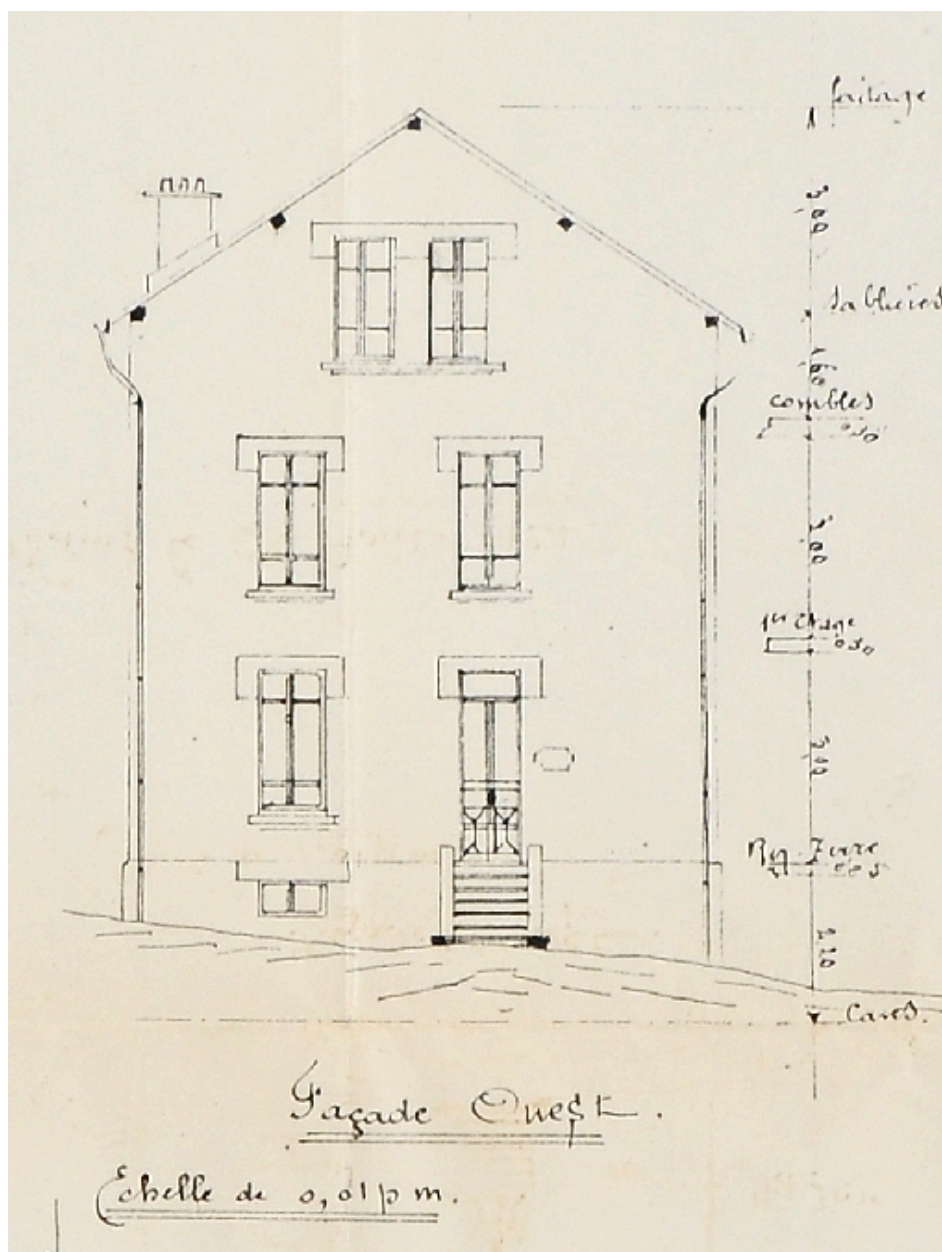 faitage
3,00
sablières
1,60
combles
0,30
3,00
1er Etage
0,30
3,00
Rez. Terre
2,20
Caves.
Façade Ouest.
Echelle de 0,01 p m.